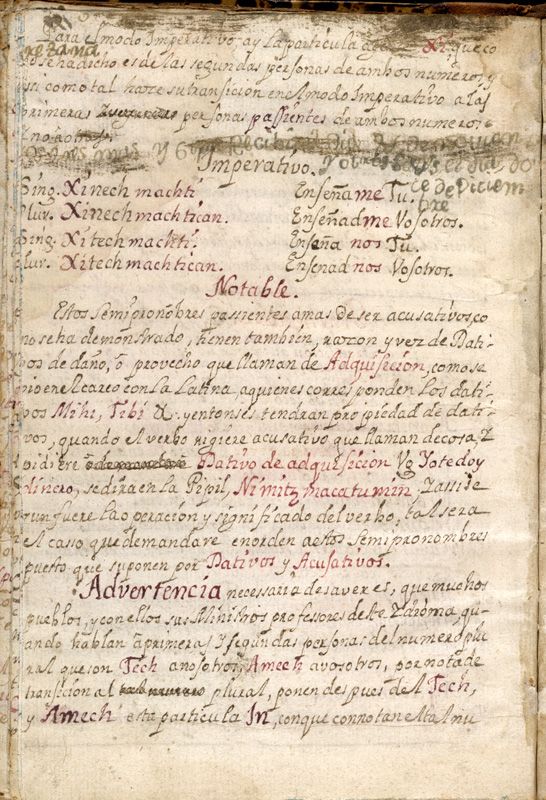 Para el modo Imperativo, ay la particula Xi, que co
rezana
mo se ha dicho es de las segundas personas de ambos numeros, y
assi como tal haze su transicion en el modo Imperativo a las
primeras personas passientes de ambos numeros:
Imperativo.
Sing. Xinech machti Enseñame Tu.
Plur. Xinechmachtican. Enseñadme Vosotros.
Sing. Xitechmachti. Enseña nos Tu.
Plur. Xitechmachtican. Ensenad nos Vosotros.
ce de Diciem
bre
Notable.
Estos semipronõbres passientes amas de ser acusativos, co
mo se ha demonstrado, tienen tambièn, razon y vez de Dati-
vos de daño, ò provecho que llaman de Adquisicion, como se
vio en el careo con la Latina, a quienes corresponden los dati-
vos Mihi, Tibi &. y entonses tendran propiedad de dati-
vos, quando el verbo rigiere acusativo que llaman de cosa, y
pidiere Dativo de adquisicion Vg Yo te doy
dinero, se dira en la Pipil, Nimitzmacatumin, y assi se
gun fuere la operacion y significado del verbo, tal sera
el caso que demandare en orden a estos semipronombres
puesto que suponen por Dativos y Acusativos.
Advertencia necessaria de saver es, que muchos
pueblos, y con ellos sus Ministros professores de este Ydioma, qu-
ando hablan a primeras y segundas personas del numero plu
ral que son Tech a nosotros, Amech a vosotros, por nota de
transicion al plural, ponen despues del Tech,
y Amech esta particula In, con que connotan el tal nu